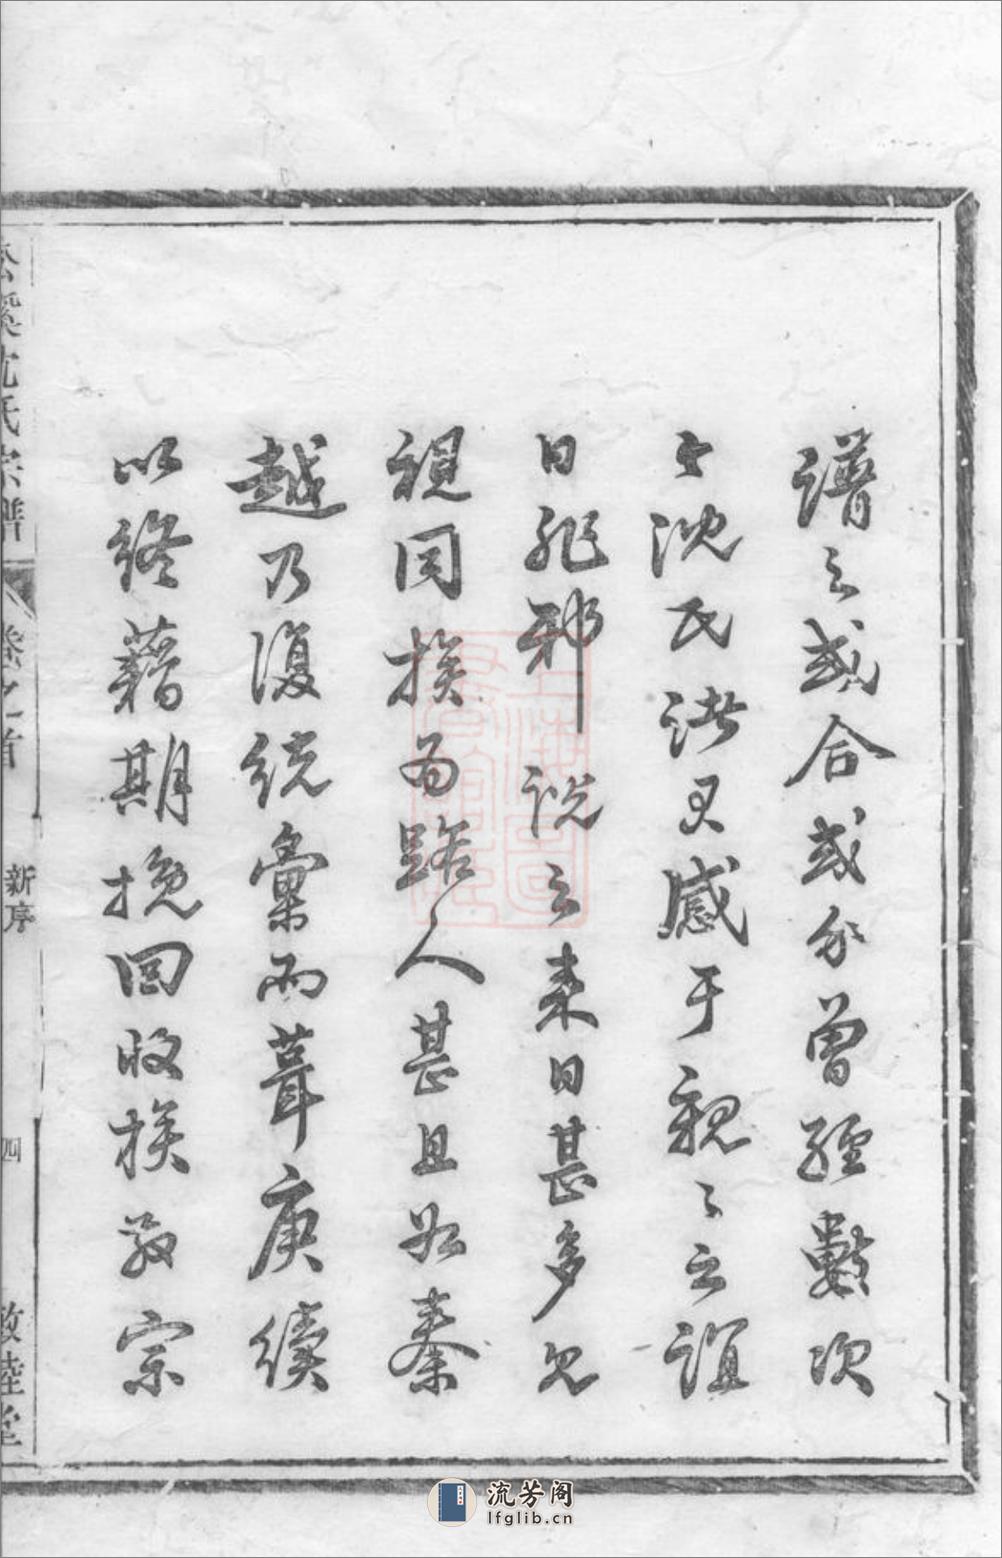 譜之或合或分曾經數次
今沈氏諸君感于親親之誼
日非邪說之来日甚多見
視同族為路人甚且如秦
越乃復統彙而葺庚續
以終藉期挽回收族敬宗
松溪沈氏宗譜
卷之首
新序
四
敦睦堂
流芳阁
lfglib.cn